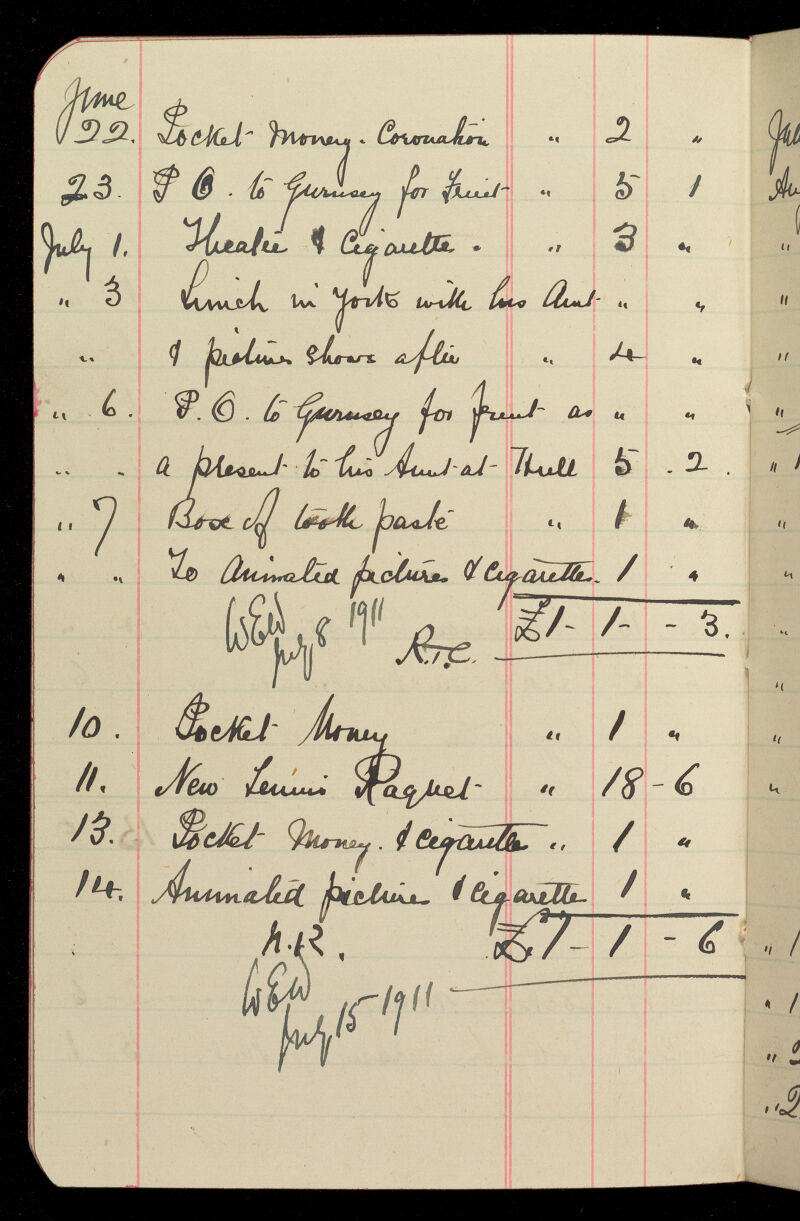 June
22. Pocket Money. Coronation " 2 "
23. P O. to Gurnsey for Fruit " 5 1
July 1. Theatre & Cigarettes. " 3 "
" 3 Lunch in York with his Aunt " "
" & pictures shows after " 4 "
" 6. P. O. to Gurnsey for fruit as " "
" . a present to his Aunt at Hull 5 . 2 .
" 7 Box of tooth paste " 1 "
" " To Animated pictures & Cigarettes. 1 "
£1 - 1 - - 3.
WEW
July 8 1911
R.T.C.
10. Pocket Money " 1 "
11. New Tennis Raquet " 18 - 6
13. Pocket Money. & Cigarettes " 1 "
14. Animated pictures & Cigarettes 1 "
£.1 - 1 - 6
WEW
July 15 1911